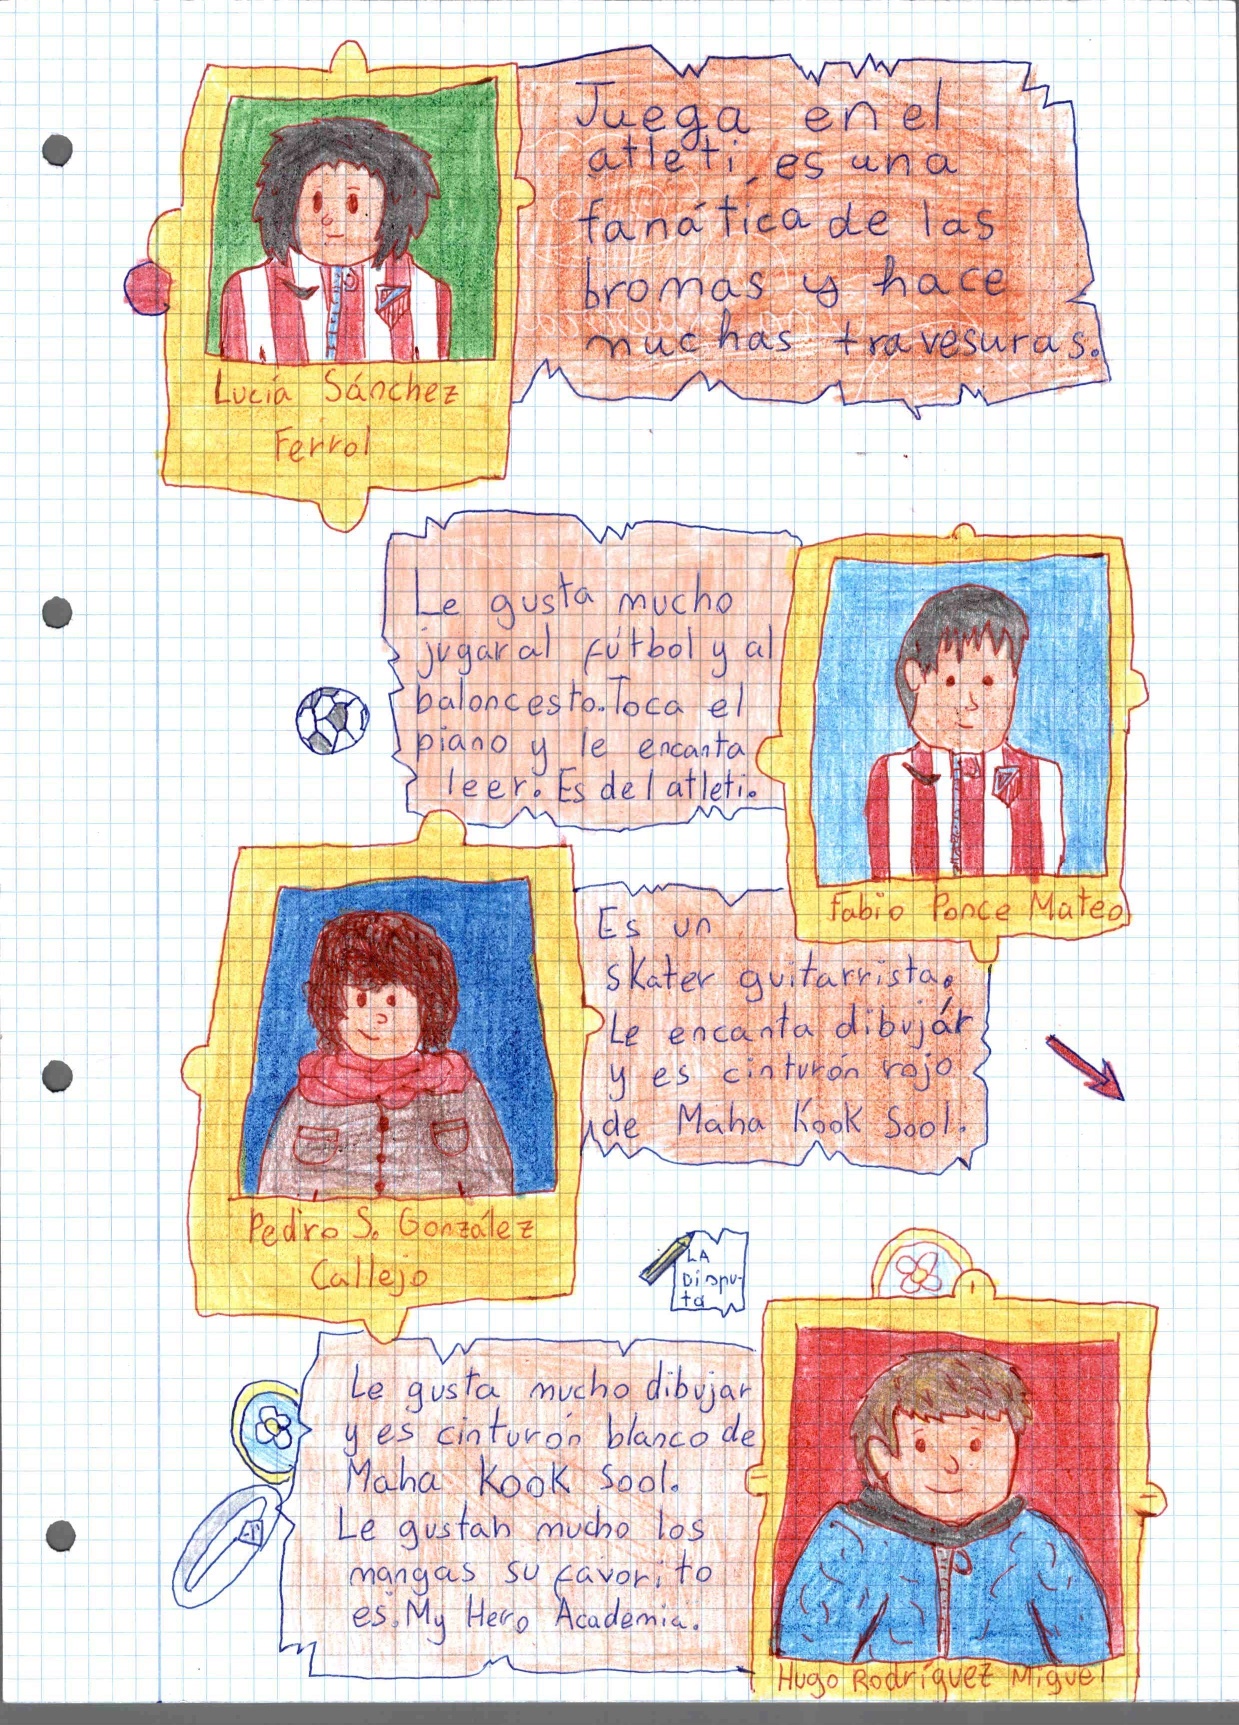 Juega en el
atleti, es una
fanática de las
bromas y hace
muchas travesuras.
Lucía Sánchez
Ferrol
Le gusta mucho
jugar al fútbol y al
baloncesto. Toca el
piano y le encanta
leer. Es del atleti.
Fabio Ponce Mateo
Es un
skater guitarrista.
Le encanta dibujár
y es cinturón rojo
de Maha Kook Sool.
Pedro S. González
Callejo
LA
Dispu-
ta
Le gusta mucho dibujar
y es cinturón blanco de
Maha Kook Sool.
Le gustan mucho los
mangas su favorito
es. My Hero Academia.
Hugo Rodríguez Miguel